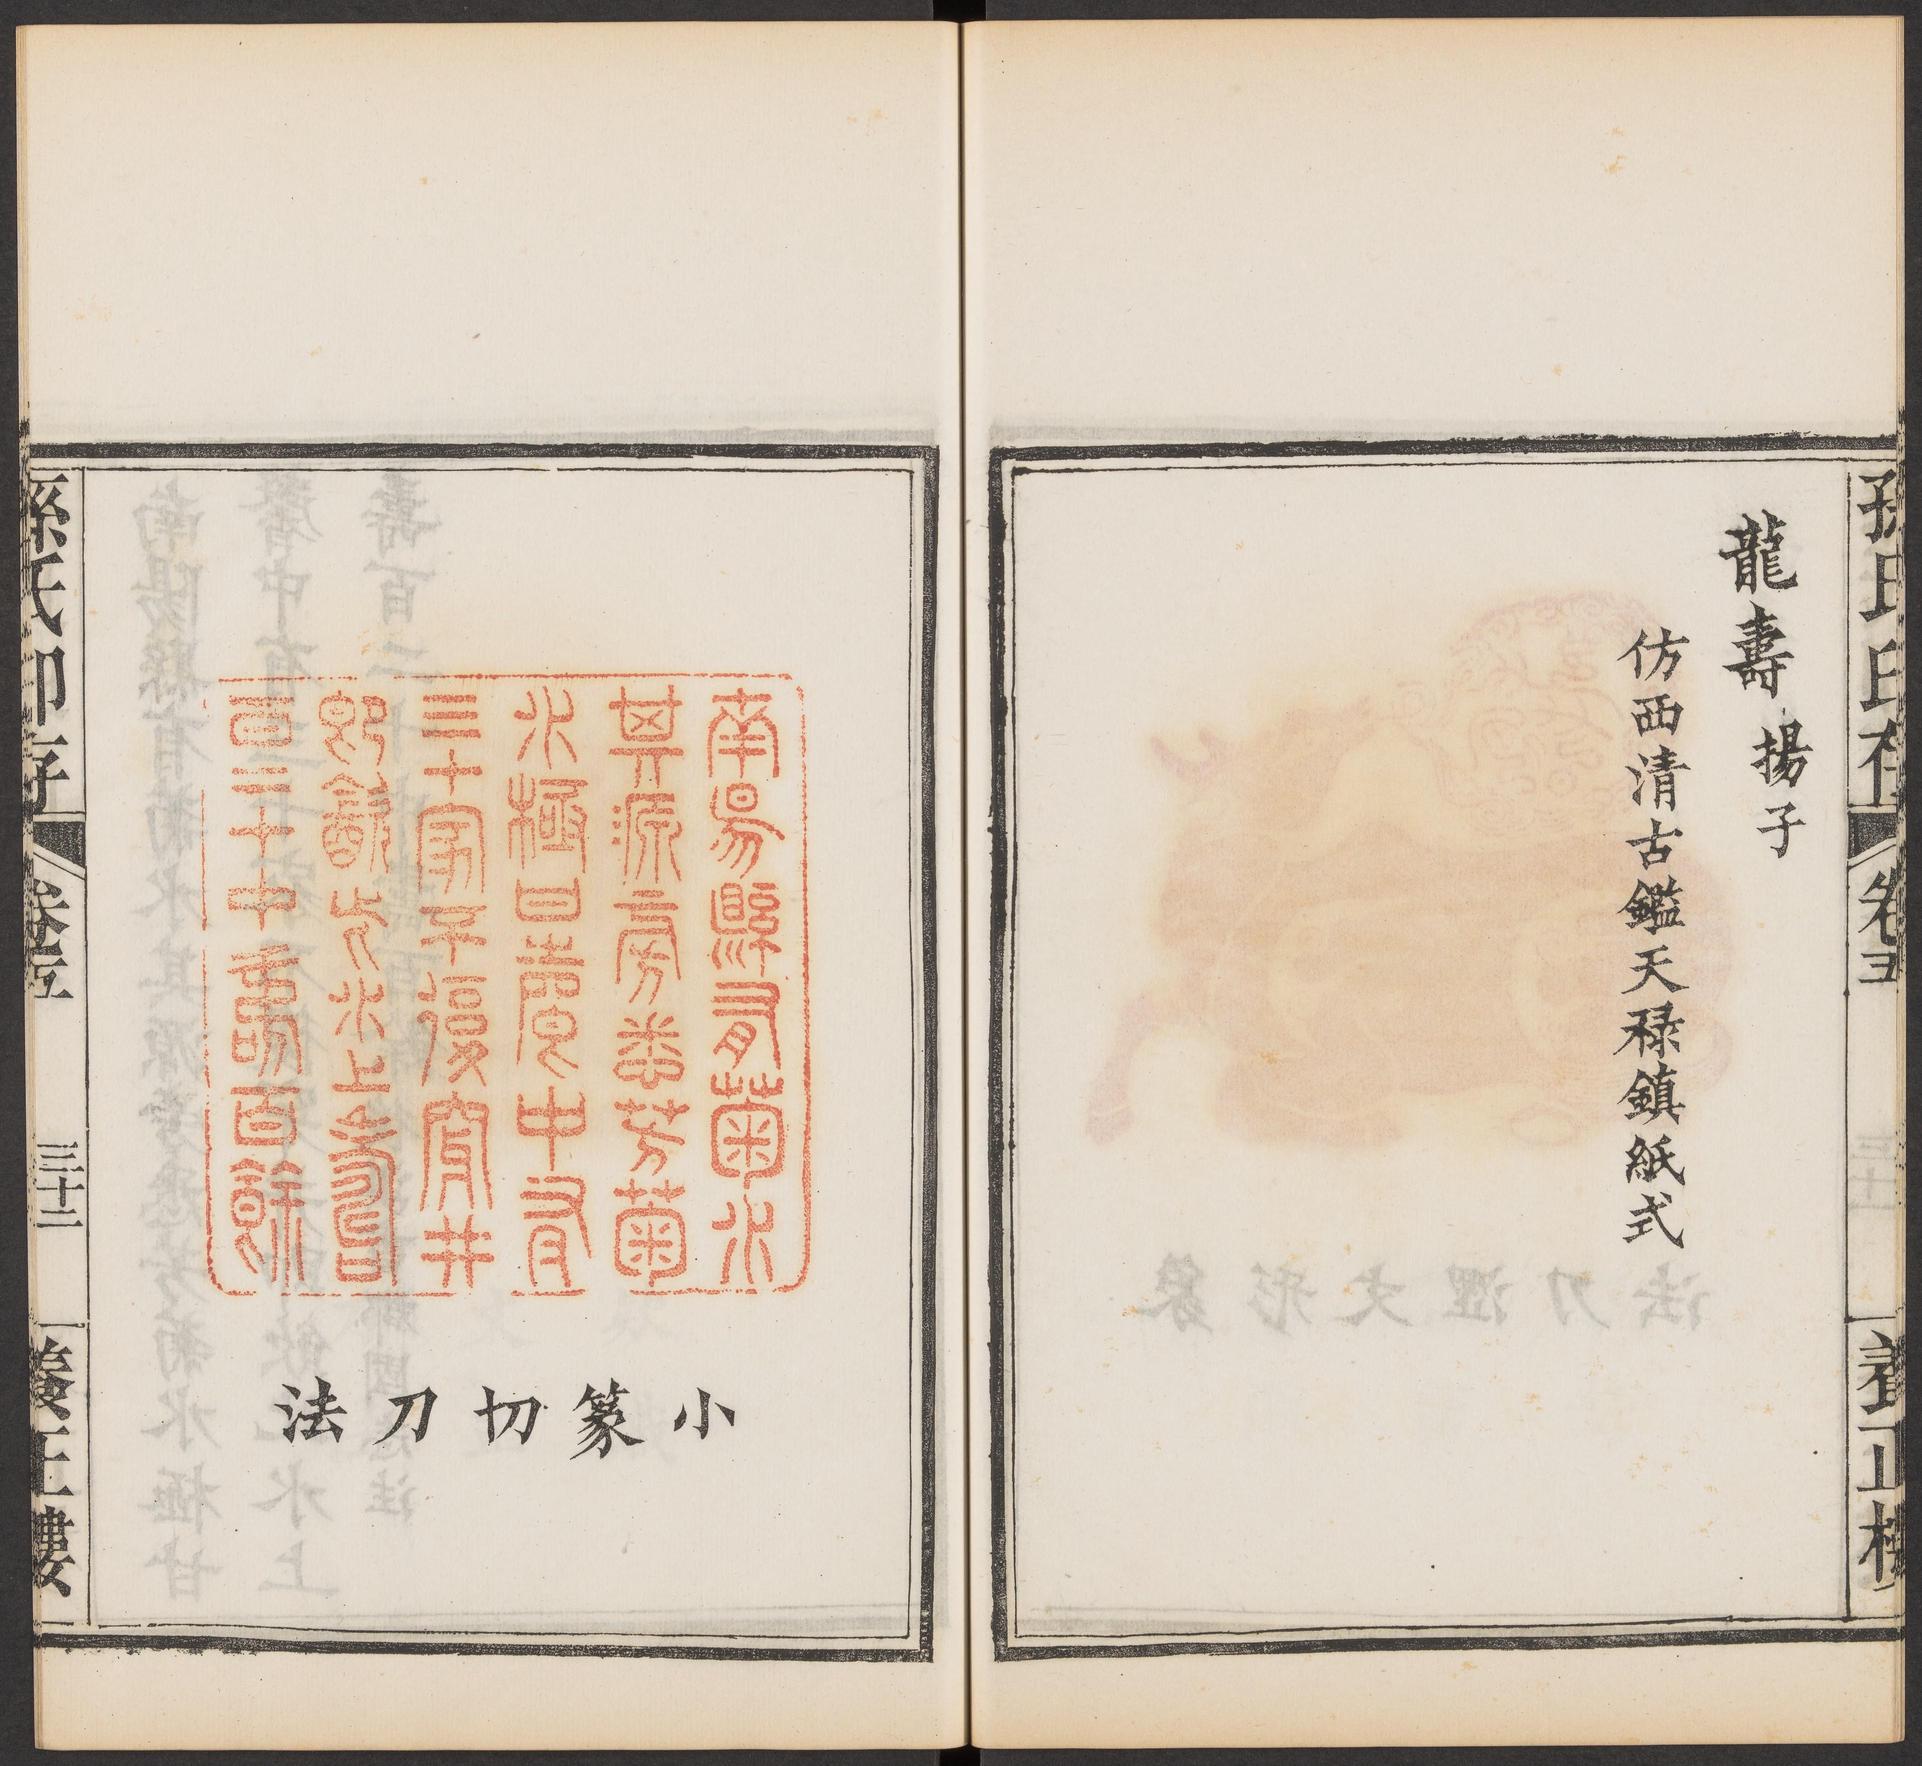 孫氏印存 卷五 養正樓
龍壽 揚子
仿西清古鑑天祿鎮紙式
南昜縣有菊水
其源旁悉芳菊
水極甘馨中有
三十家不復穿井
即飲此水上壽
百二十中壽百餘
小篆切刀法
孫氏印存 卷五 三十二 養正樓